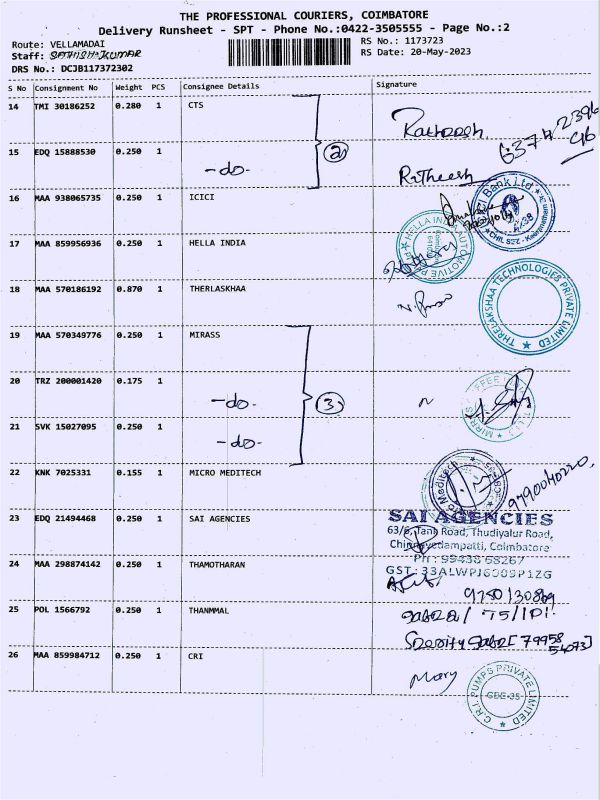 THE PROFESSIONAL COURIERS, COIMBATORE
Delivery Runsheet - SPT - Phone No.:0422-3505555 - Page No.:2
Route: VELLAMADAI
RS No.: 1173723
Staff: SATHISH KUMAR
RS Date: 20-May-2023
DRS No.: DCJB117372302
S No Consignment No Weight PCS Consignee Details Signature
14 TMI 30186252 0.280 1 CTS
15 EDQ 15888530 0.250 1 -do- Ratheesh
(2)
16 MAA 938065735 0.250 1 ICICI
17 MAA 859956936 0.250 1 HELLA INDIA
HELLA INDIA AUTOMOTIVE
18 MAA 570186192 0.870 1 THERLASKHAA
THRELAKSHAA TECHNOLOGIES PRIVATE LIMITED
19 MAA 570349776 0.250 1 MIRASS
20 TRZ 200001420 0.175 1 -do-
(3)
21 SVK 15027095 0.250 1 -do-
22 KNK 7025331 0.155 1 MICRO MEDITECH
9790040220,
23 EDQ 21494468 0.250 1 SAI AGENCIES
SAI AGENCIES
Tank Road, Thudiyalur Road,
Chinnavedampatti, Coimbatore
24 MAA 298874142 0.250 1 THAMOTHARAN
25 POL 1566792 0.250 1 THANMMAL
26 MAA 859984712 0.250 1 CRI Mary
C.R.I. PUMPS PRIVATE LIMITED
CBE-35